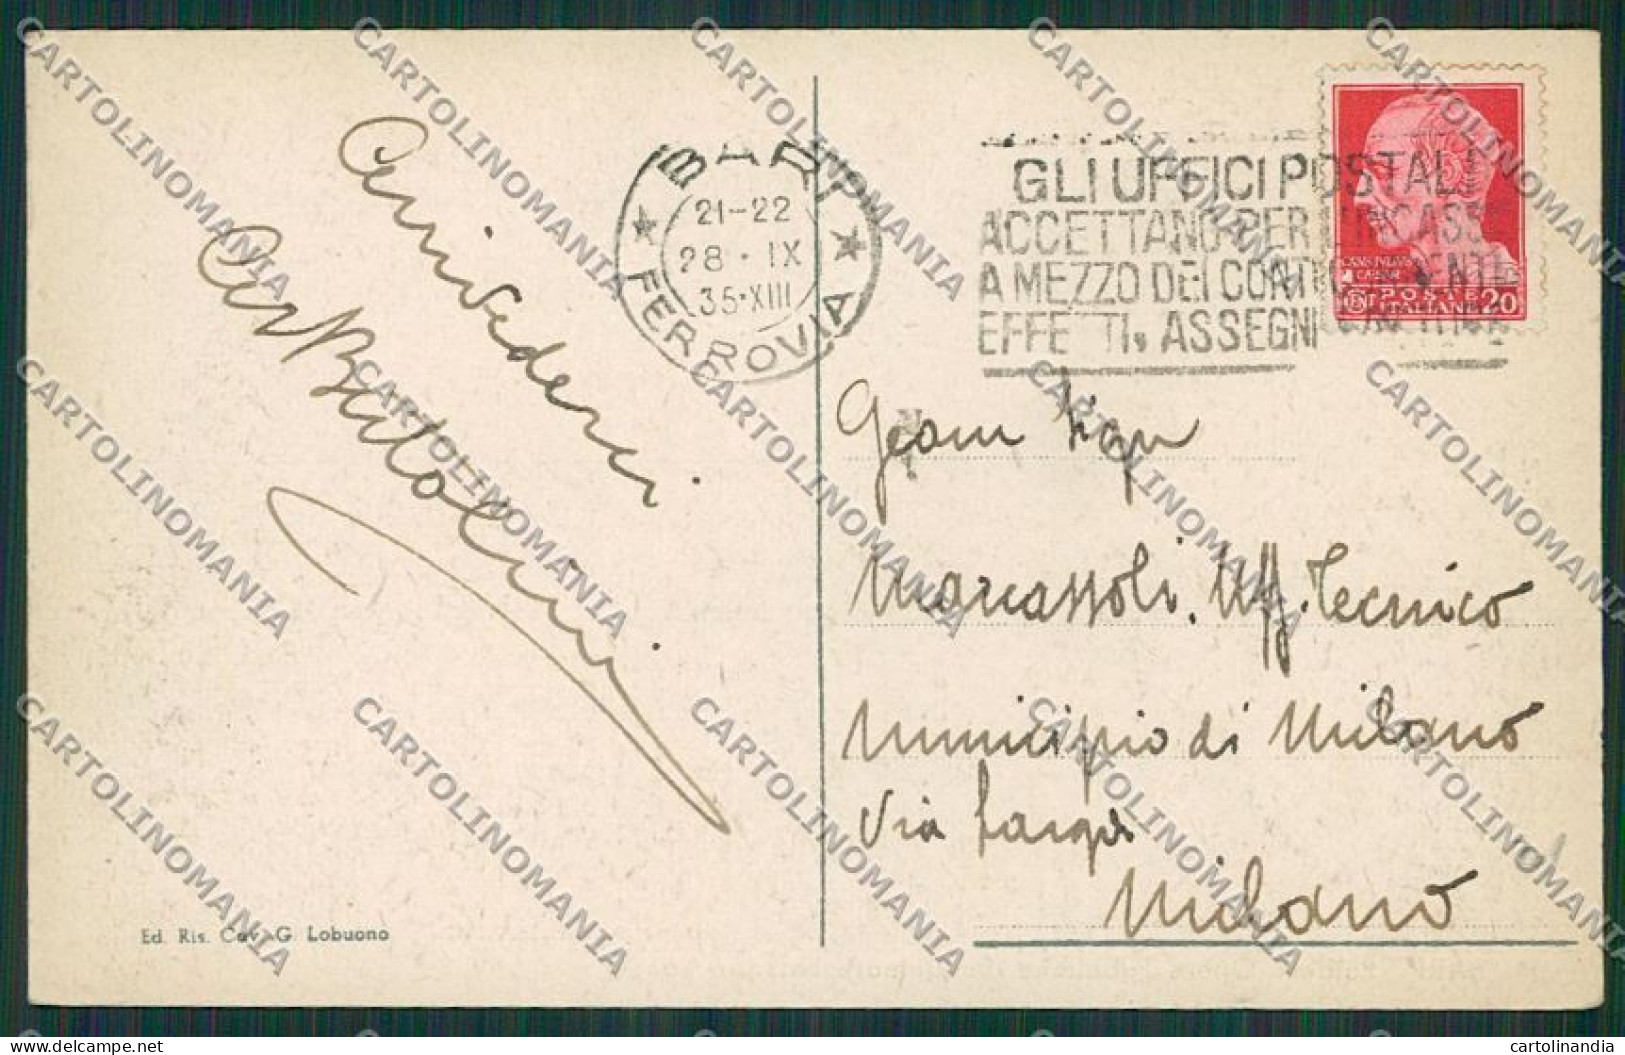 BARI
FERROVIA
21-22
28 · IX
35·XIII
GLI UFFICI POSTALI
ACCETTANO PER L'INCASSO
A MEZZO DEI CONTI CORRENTI
EFFETTI, ASSEGNI
POSTE
ITALIANE
20
Arrivederci
Geom Sign
Marcassoli. Uff. Tecnico
Municipio di Milano
Via Larga
Milano
Ed. Ris. Cav. G. Lobuono
CARTOLINOMANIA
delcampe.net
cartolinandia